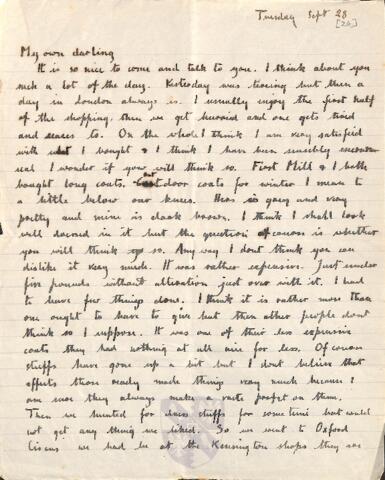 Tuesday Sept 28
[20]
My own darling
It is so nice to come and talk to you. I think about you
such a lot of the day. Yesterday was tiring but then a
day in London always is. I usually enjoy the first half
of the shopping then we get hurried and one gets tired
and ceases to. On the whole I think I am very satisfied
with what I bought & I think I have been sensibly economical
I wonder if you will think so. First Moll & I both
bought long coats. Out door coats for winter I mean to
a little below our knees. Hers is grey and very
pretty and mine is dark brown. I think I shall look
well dressed in it but the question of course is whether
you will think so. Any way I dont think you can
dislike it very much. It was rather expensive. Just under
five pounds without alteration just over with it. I had
to have few things done. I think it is rather more than
one ought to have to give but then other people dont
think so I suppose. It was one of their less expensive
coats they had nothing at all nice for less. Of course
stuffs have gone up a bit but I dont believe that
affects those ready made things very much because I
am sure they always make a vast profit on them.
Then we hunted for dress stuffs for some time but could
not get any thing we liked. So we went to Oxford
Circus we had be at the Kensington shops they are